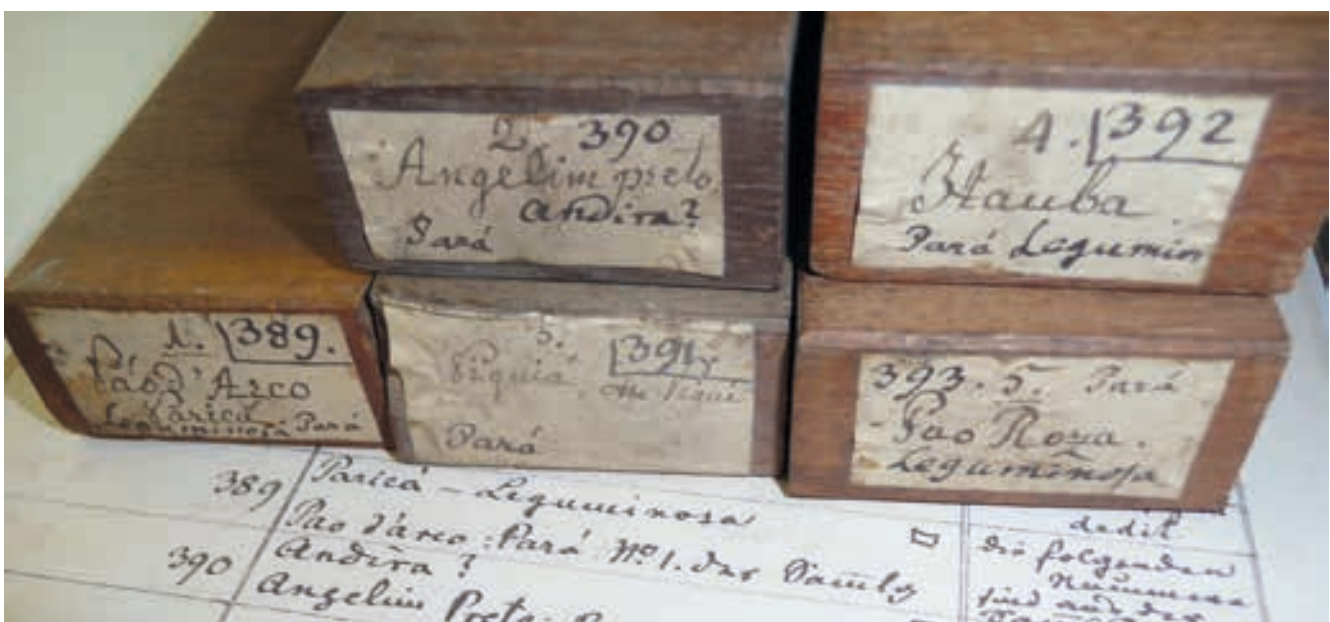 2. 390
Angelim preto.
Andira?
Pará
4. 392
Itauba.
Pará Legumin
1. 389.
Páo d'Arco
Paricá
Leguminosa Pará
3. 391.
Piquiá
Pará
393. 5. Pará
Pao Roza.
Leguminosa
389 Paricá - Leguminosa
Pao d'arco: Pará No. 1. der Samlg
390 Andira?
Angelim Preto
dedit
die folgenden
Nummern
sind aus der